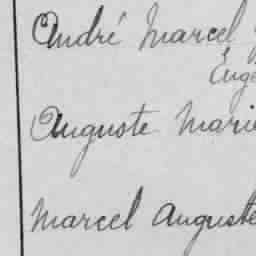 André Marcel
Euge
Auguste Marie
Marcel Auguste